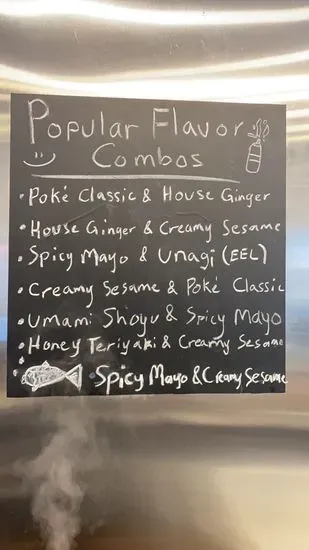 Popular Flavor
Combos
• Poké Classic & House Ginger
• House Ginger & Creamy Sesame
• Spicy Mayo & Unagi (EEL)
• Creamy Sesame & Poké Classic
• Umami Shoyu & Spicy Mayo
• Honey Teriyaki & Creamy Sesame
• Spicy Mayo & Creamy Sesame